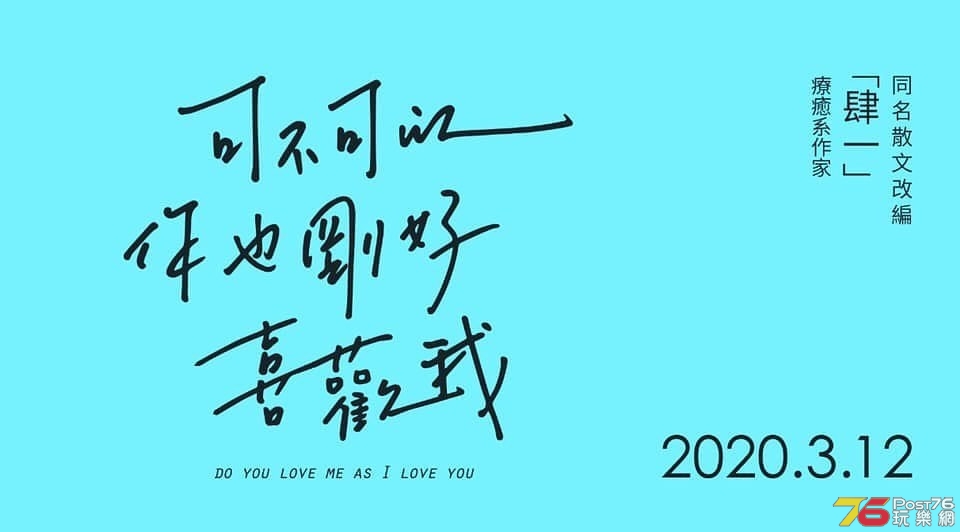 可不可以
你也剛好
喜歡我
DO YOU LOVE ME AS I LOVE YOU
同名散文改編
「肆一」
療癒系作家
2020.3.12
76 POST76
玩樂網